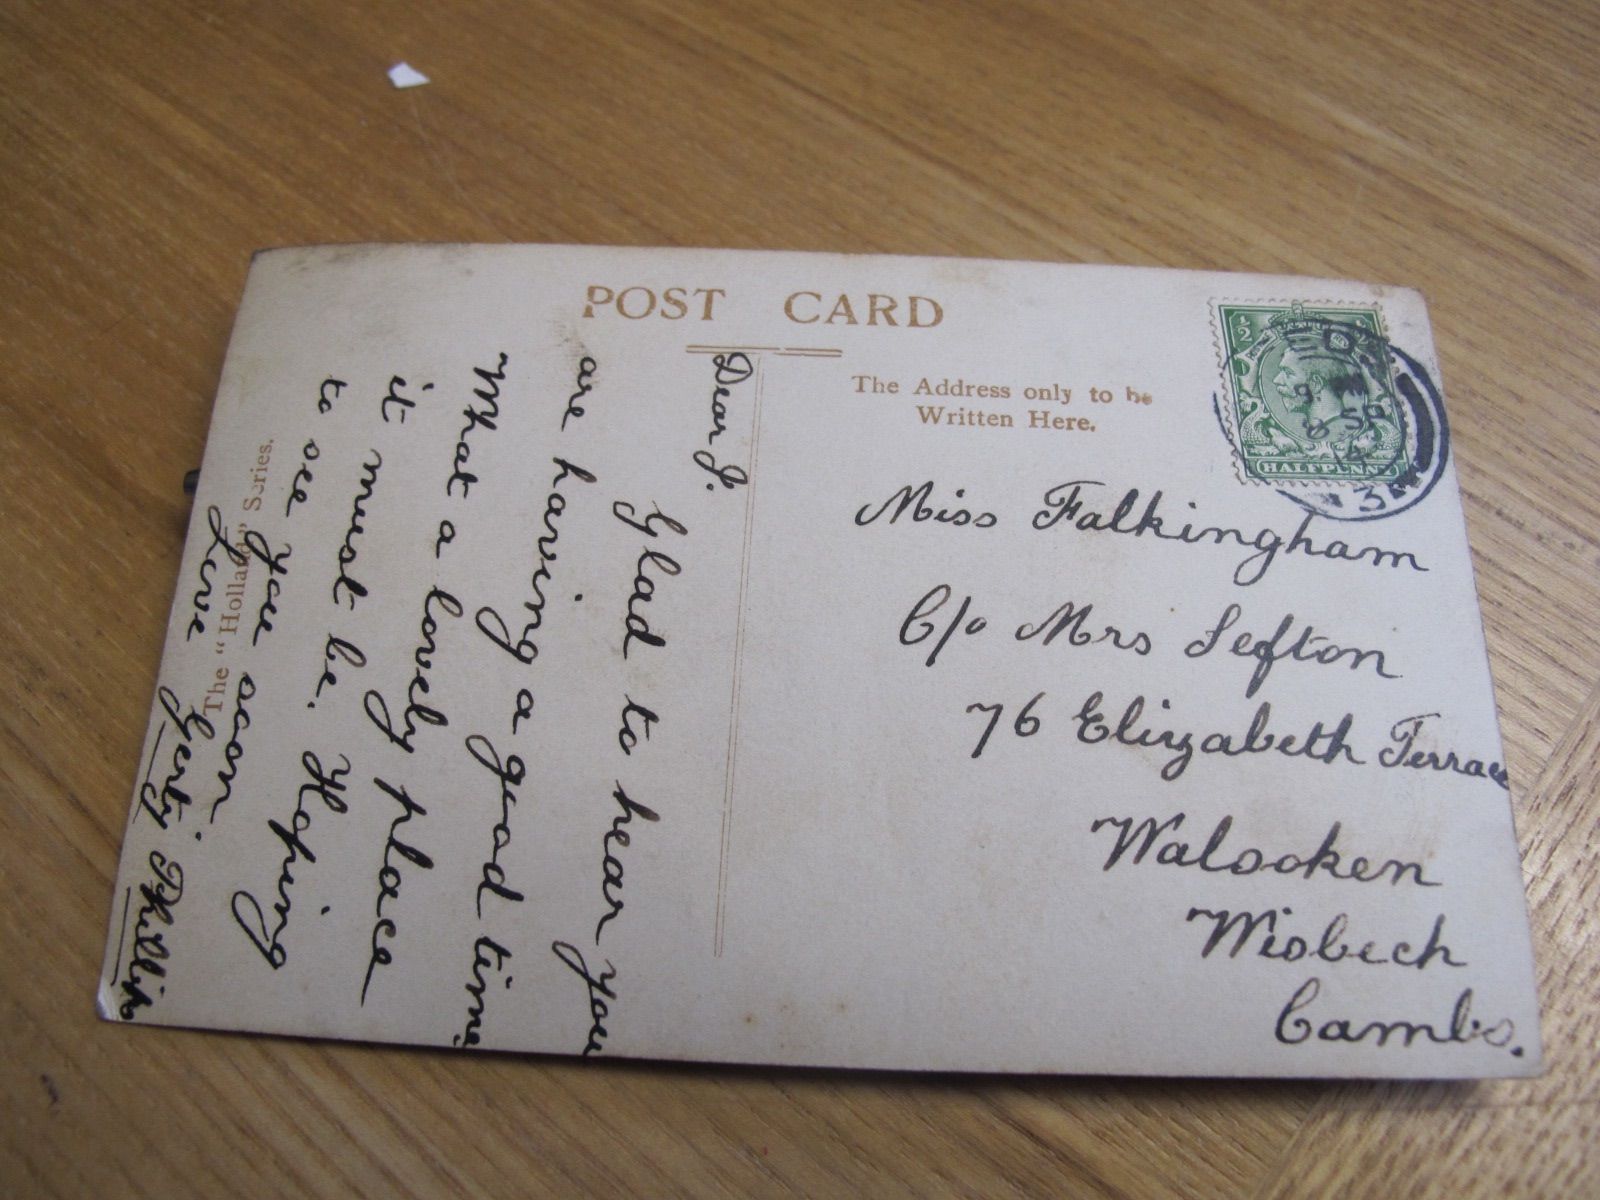 POST CARD
The Address only to be
Written Here.
½
½
HALFPENNY
SP
14
3
Miss Falkingham
C/o Mrs Sefton
76 Elizabeth Terrace
Walsoken
Wisbech
Cambs.
Dear J.
Glad to hear you
are having a good time
What a lovely place
it must be. Hoping
to see you soon
Love Gerty Phillips
The "Holland" Series.